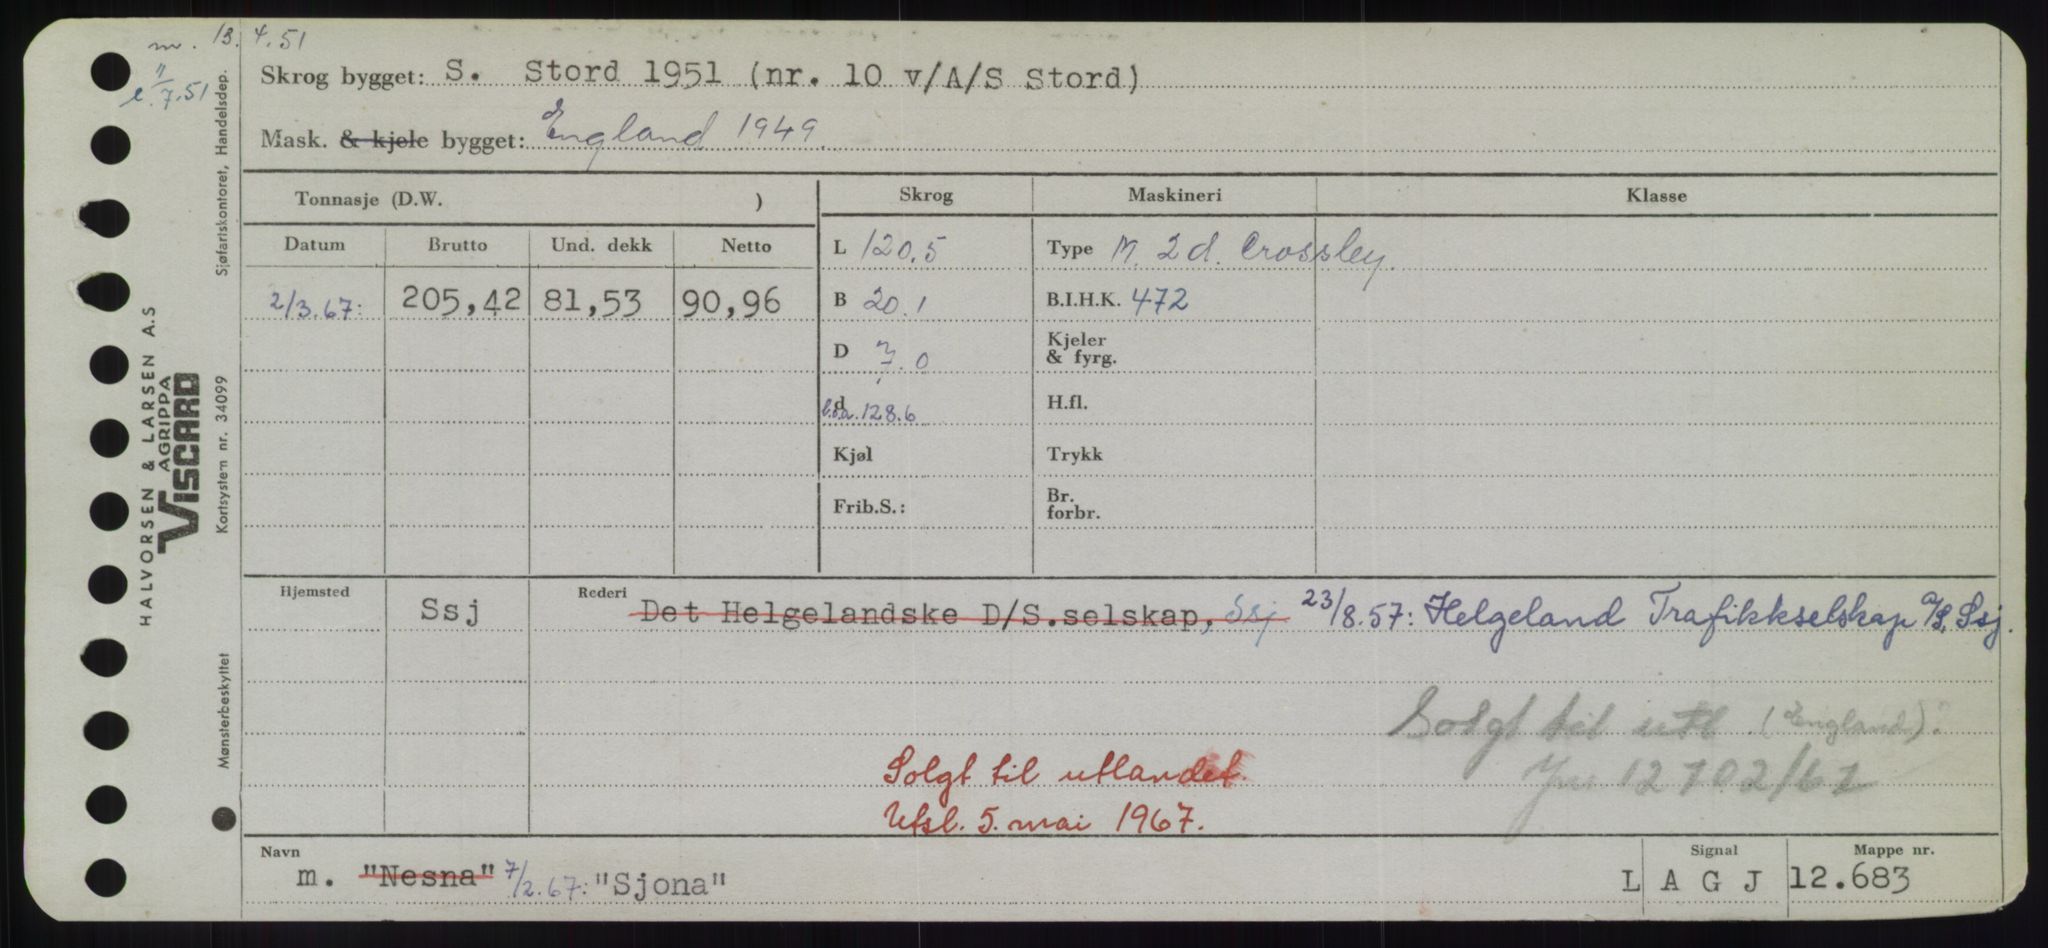 m. 13.4.51
e. 11/7.51
Skrog bygget: S. Stord 1951 (nr. 10 v/A/S Stord)
Mask. & kjele bygget: England 1949.
Tonnasje (D.W. )
Skrog
Maskineri
Klasse
Datum
Brutto
Und. dekk
Netto
2/3.67: 205,42 81,53 90,96
L 120.5
B 20.1
D 7.0
d l.o.a. 128.6
Kjøl
Frib.S.:
Type M. 2 d. Crossley.
B.I.H.K. 472
Kjeler
& fyrg.
H.fl.
Trykk
Br.
forbr.
Hjemsted
Ssj
Rederi
Det Helgelandske D/S.selskap, Ssj 23/8.57: Helgeland Trafikkselskap A/S, Ssj.
Solgt til utl. (England).
Solgt til utlandet.
Utsl. 5. mai 1967.
Navn
m. "Nesna" 7/2.67: "Sjona"
Signal
L A G J
Mappe nr.
12.683
HALVORSEN & LARSEN A.S
AGRIPPA
VISCARD
Sjøfartskontoret, Handelsdep.
Kortsystem nr. 34099
Mønsterbeskyttet